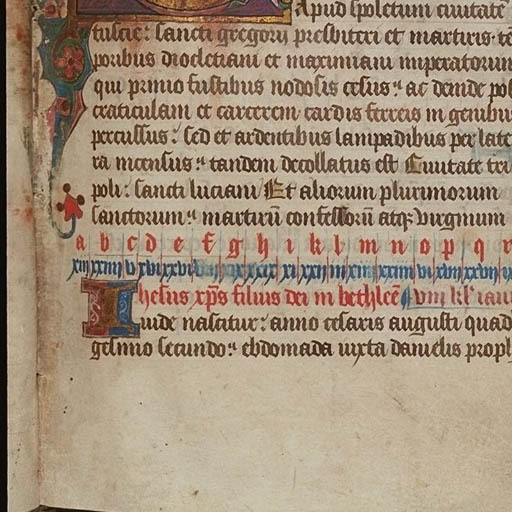 Apud spoletum ciuitate
tuscie: sancti gregorij presbiteri et martiris. te
poribus diocletiani et maximiani imperatorum
qui primo fustibus nodosis cesus: ac deinde pos
craticulam et carcerem cardis ferreis in genibus
percussus: sed et ardentibus lampadibus per late
ra incensus: tandem decollatus est Ciuitate tri
poli: sancti luciani Et aliorum plurimorum
sanctorum: martirū confessorū atqȝ virginum
a b c d e f g h i k l m n o p q r
Ihesus xp̄s filius dei in bethleē viii kl' ianu
iude nascitur: anno cesaris augusti quad
gesimo secundo: ebdomada iuxta danielis proph